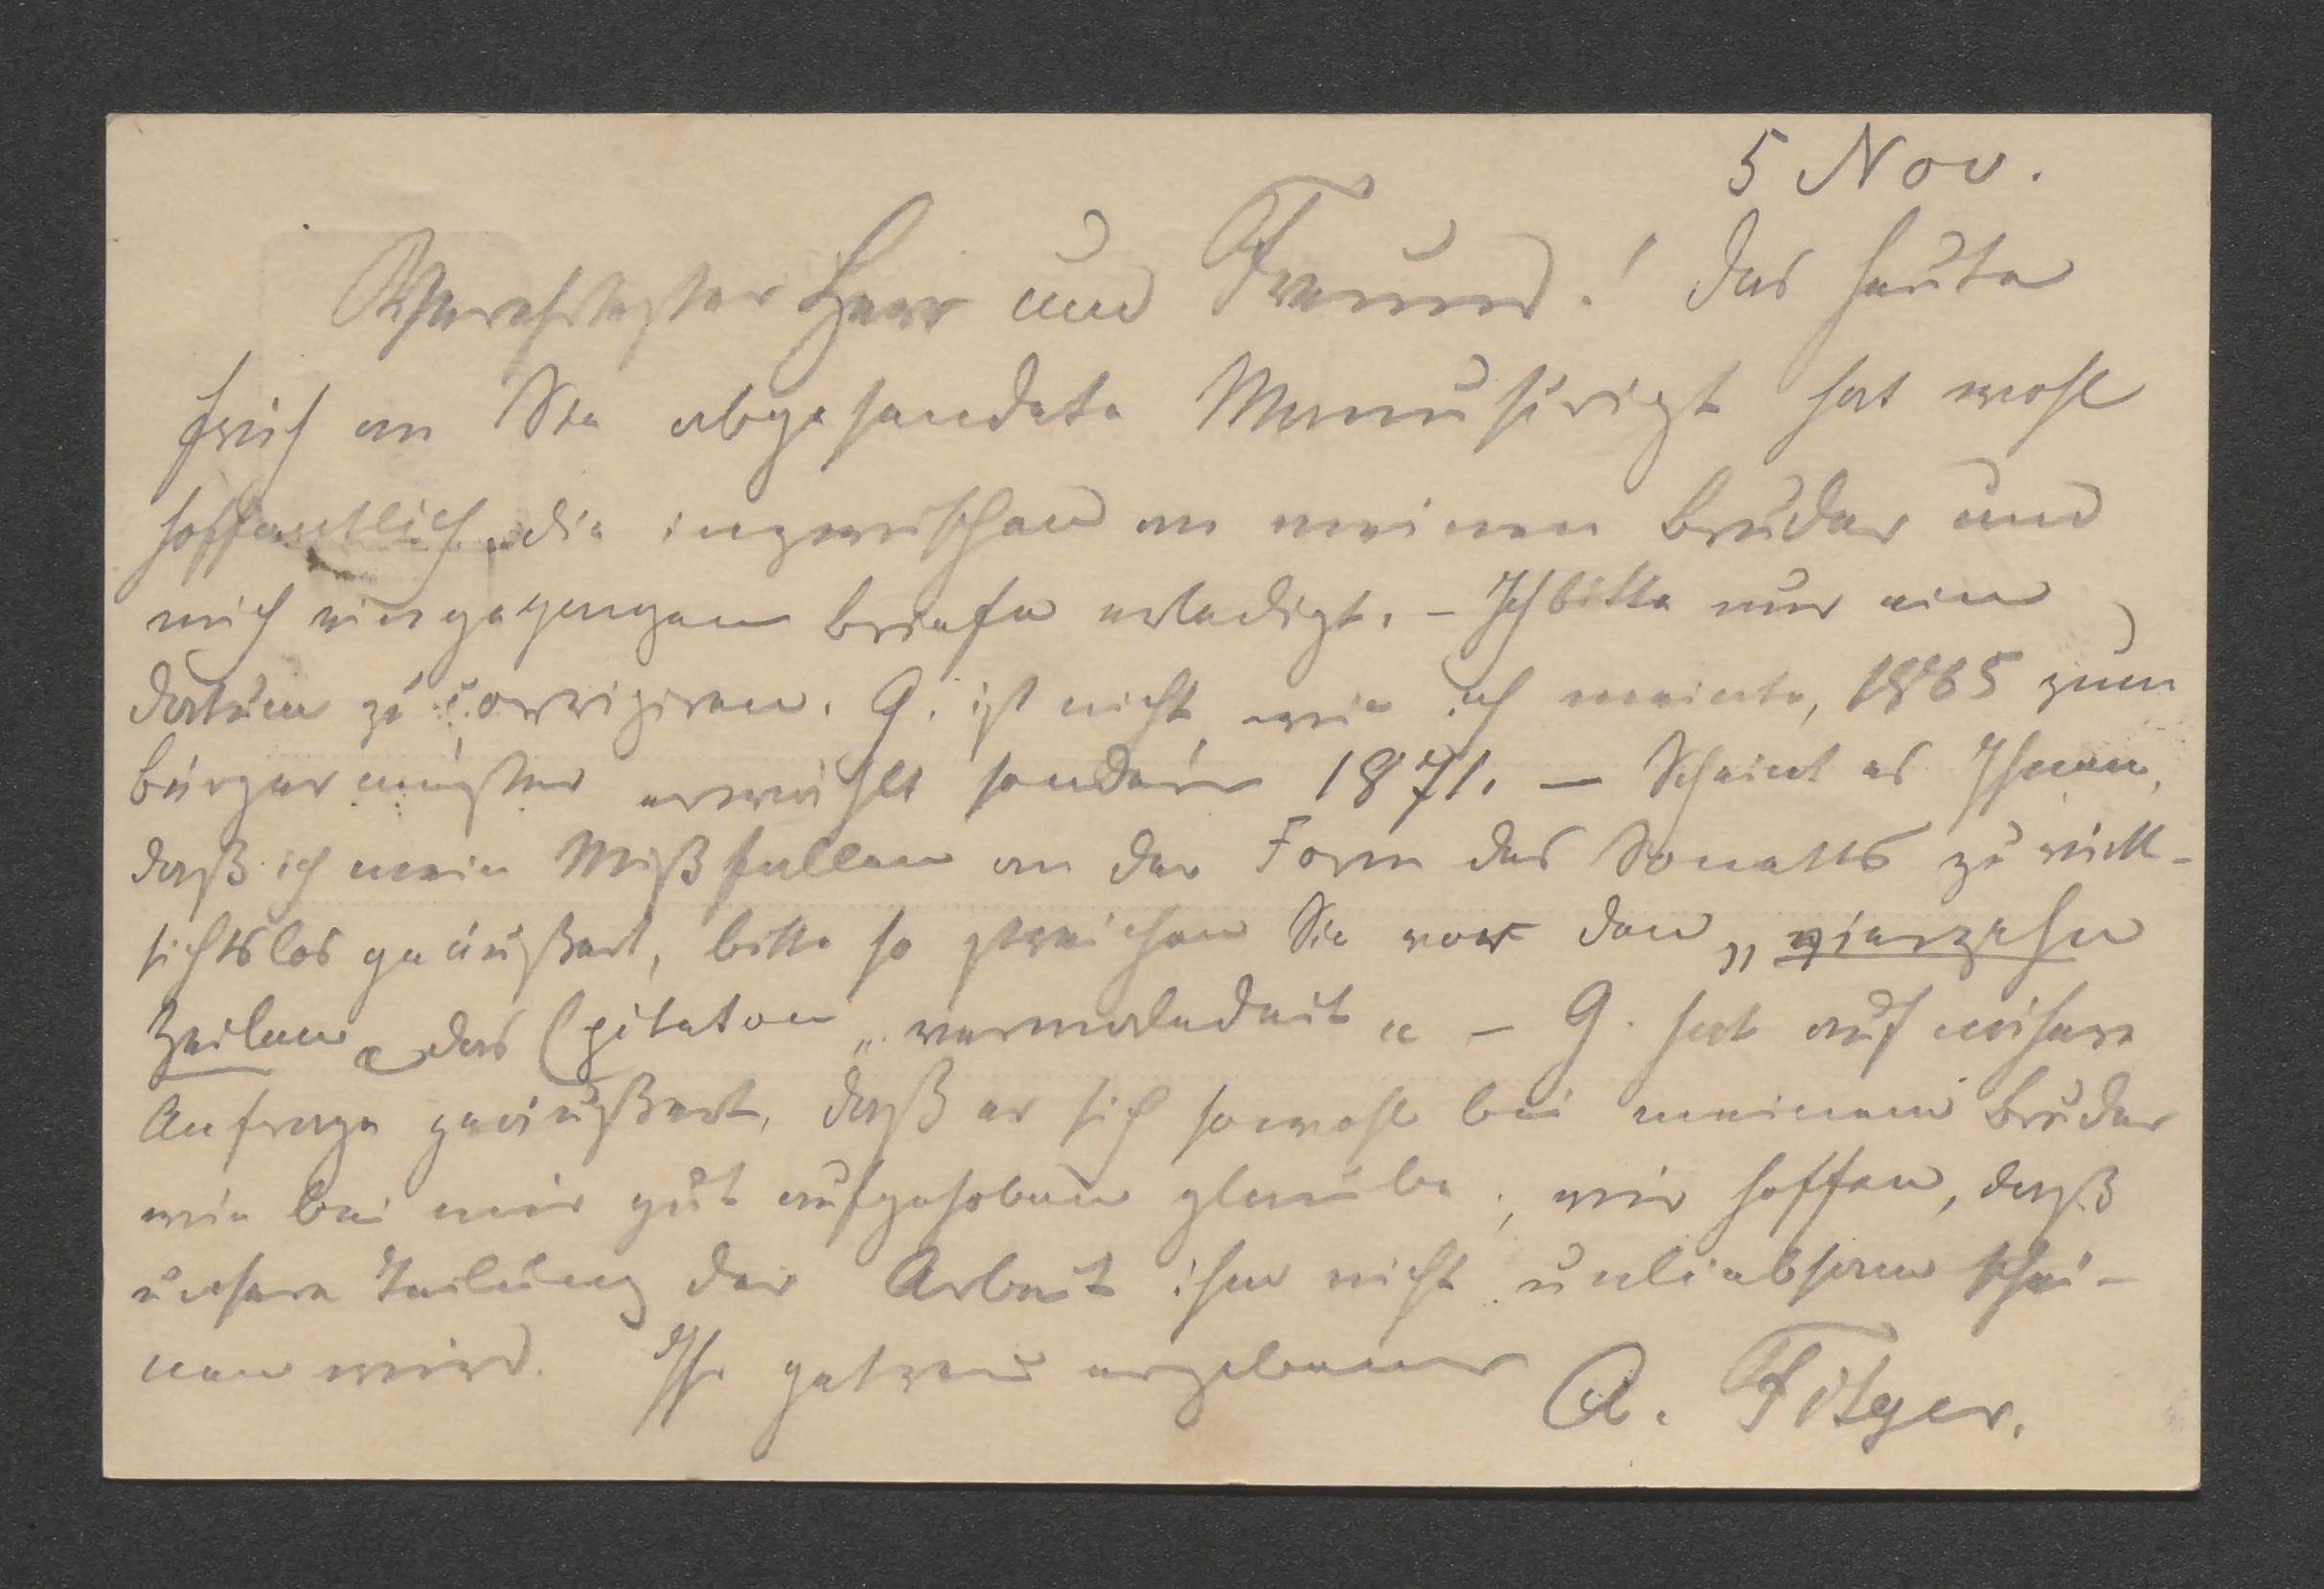 5 Nov.
Verehrtester Herr und Freund! Das heute
früh an Sie abgesandte Manuscript hat wohl
hoffentlich die inzwischen an meinen Bruder und
mich eingegangenen Briefe erledigt. – Ich bitte nur ein
Datum zu corrigiren. G. ist nicht, wie ich meinte, 1865 zum
Bürgermeister erwählt sondern 1871. – Scheint es Ihnen,
daß ich mein Mißfallen an der Form des Sonetts zu rück-
sichtslos geäußert, bitte so streichen Sie vor den „vierzehn
Zeilen" das Epiteton „vermaledeit" – G. hat auf unsere
Anfrage geäußert, daß er sich sowohl bei meinem Bruder
wie bei mir gut aufgehoben glaube; wir hoffen, daß
unsere Teilung der Arbeit ihm nicht unliebsam schei-
nen wird. Ihr getreu ergebener A. Fitger.